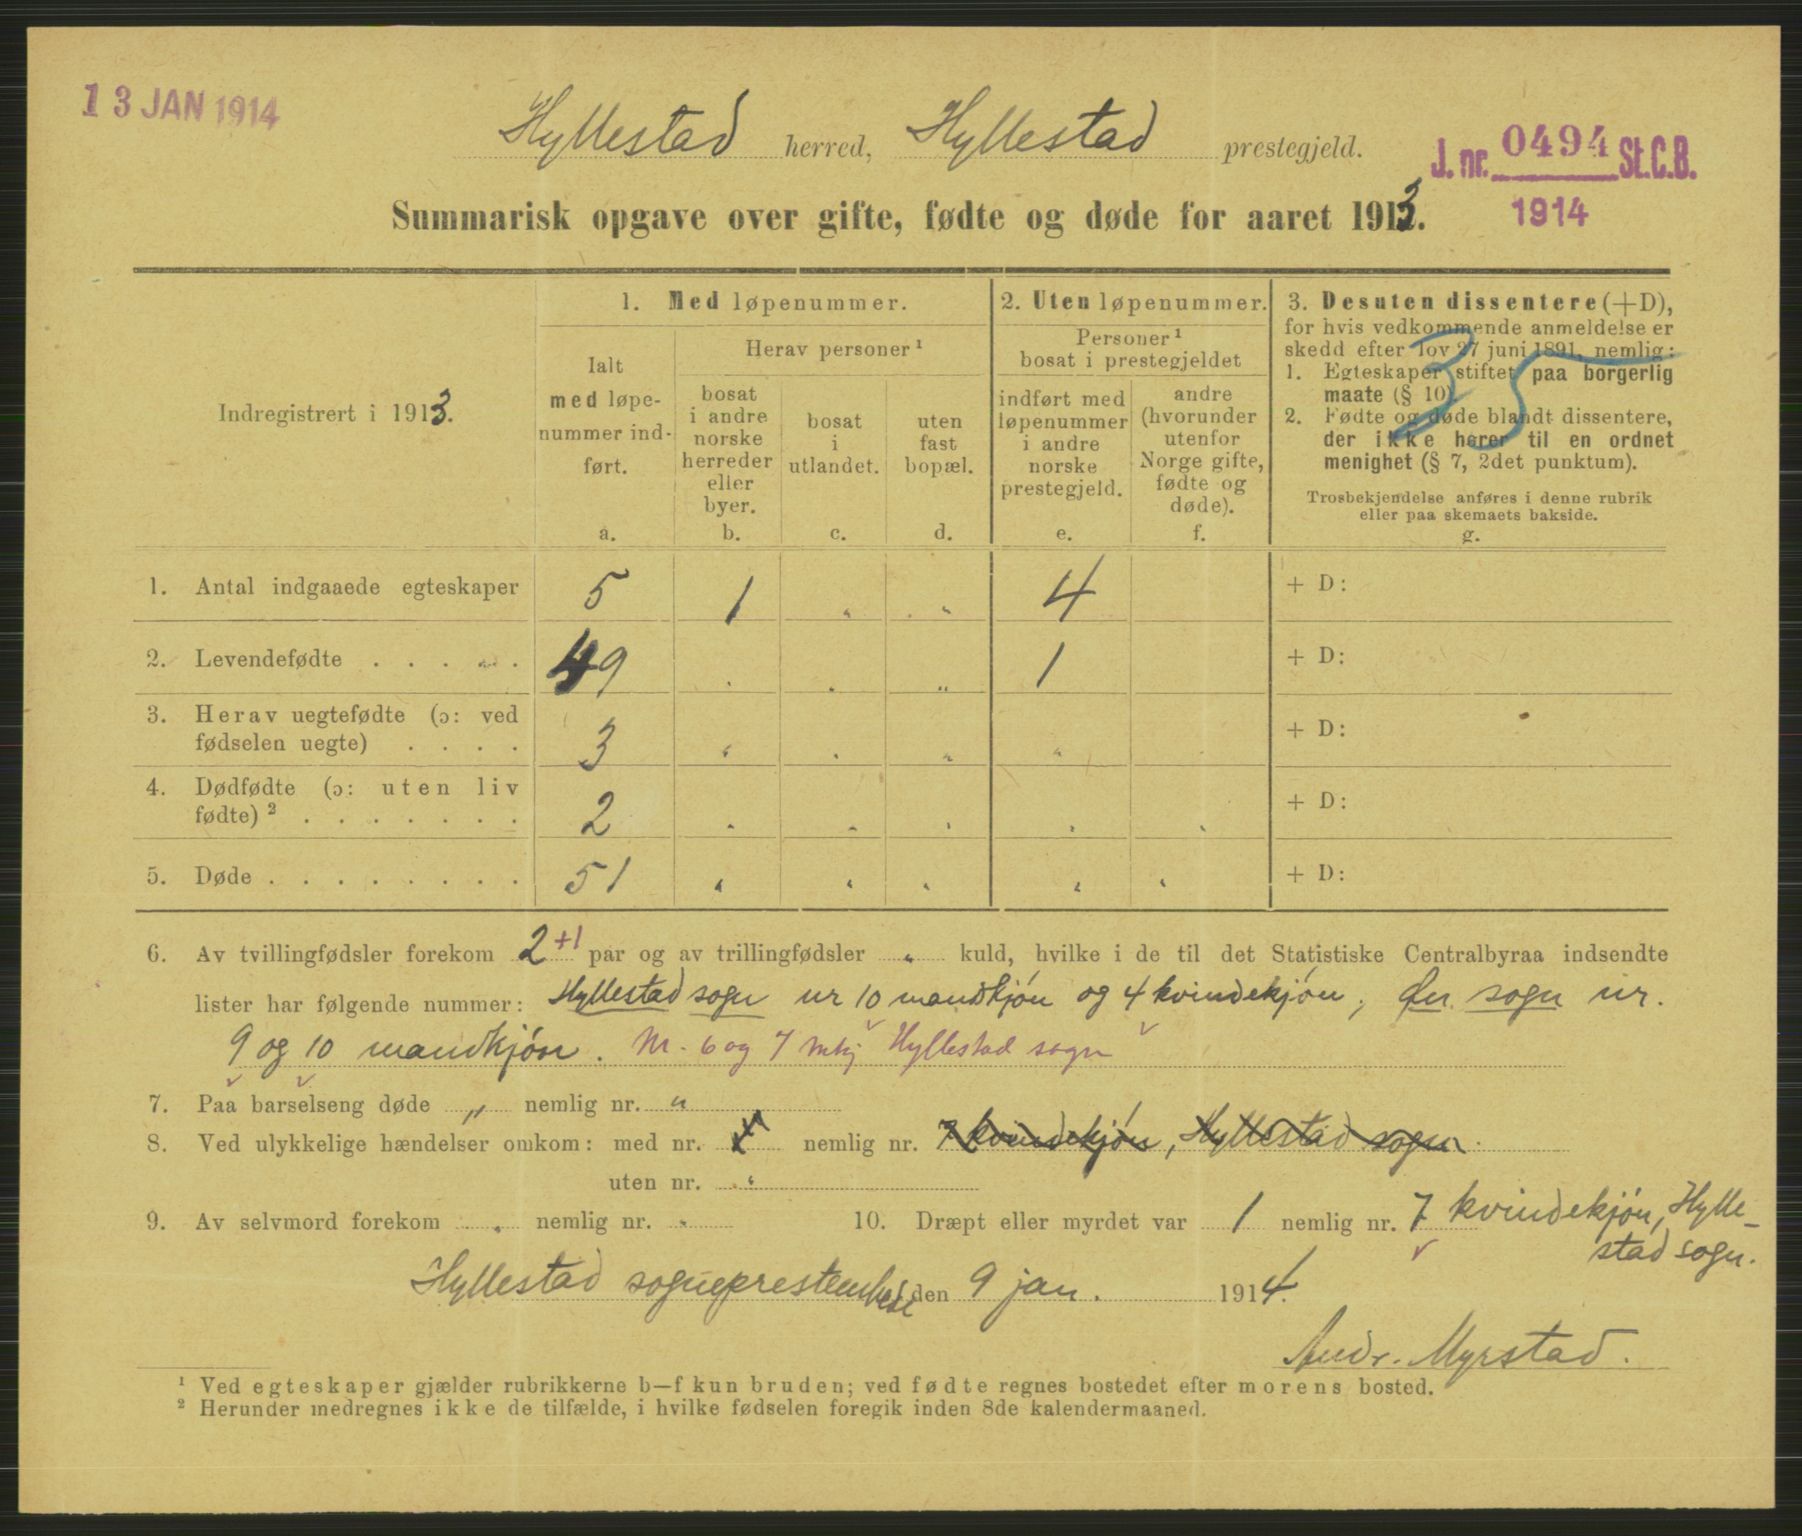 13 JAN 1914
Hyllestad herred, Hyllestad prestegjeld.
J. nr. 0494 St.C.B.
1914
Summarisk opgave over gifte, fødte og døde for aaret 1913.
Indregistrert i 1913.
1. Med løpenummer.
Ialt
med løpe-
nummer ind-
ført.
a.
Herav personer ¹
bosat
i andre
norske
herreder
eller
byer.
b.
bosat
i
utlandet.
c.
uten
fast
bopæl.
d.
2. Uten løpenummer.
Personer ¹
bosat i prestegjeldet
indført med
løpenummer
i andre
norske
prestegjeld.
e.
andre
(hvorunder
utenfor
Norge gifte,
fødte og
døde).
f.
3. Desuten dissentere (+D),
for hvis vedkommende anmeldelse er
skedd efter lov 27 juni 1891, nemlig:
1. Egteskaper stiftet paa borgerlig
maate (§ 10)
2. Fødte og døde blandt dissentere,
der ikke hører til en ordnet
menighet (§ 7, 2det punktum).
Trosbekjendelse anføres i denne rubrik
eller paa skemaets bakside.
g.
35
1. Antal indgaaede egteskaper 5 1 „ „ 4 + D:
2. Levendefødte . . . . . 49 „ „ „ 1 + D:
3. Herav uegtefødte (ɔ: ved
fødselen uegte) . . . . 3 „ „ „ „ + D:
4. Dødfødte (ɔ: uten liv
fødte) ² . . . . . . . 2 „ „ „ „ „ + D:
5. Døde . . . . . . . . 51 „ „ „ „ „ + D:
6. Av tvillingfødsler forekom 2 +1 par og av trillingfødsler „ kuld, hvilke i de til det Statistiske Centralbyraa indsendte
lister har følgende nummer: Hyllestad sogn nr 10 mandkjøn og 4 kvindekjøn; Øn sogn nr.
9 og 10 mandkjøn. Nr. 6 og 7 mkj Hyllestad sogn
7. Paa barselseng døde „ nemlig nr. „
8. Ved ulykkelige hændelser omkom: med nr. nemlig nr. 7 kvindekjøn, Hyllestad sogn.
uten nr. „
9. Av selvmord forekom „ nemlig nr. „ 10. Dræpt eller myrdet var 1 nemlig nr. 7 kvindekjøn, Hylle-
stad sogn.
Hyllestad sogneprestembede den 9 jan. 1914.
Andr. Myrstad.
¹ Ved egteskaper gjælder rubrikkerne b—f kun bruden; ved fødte regnes bostedet efter morens bosted.
² Herunder medregnes ikke de tilfælde, i hvilke fødselen foregik inden 8de kalendermaaned.